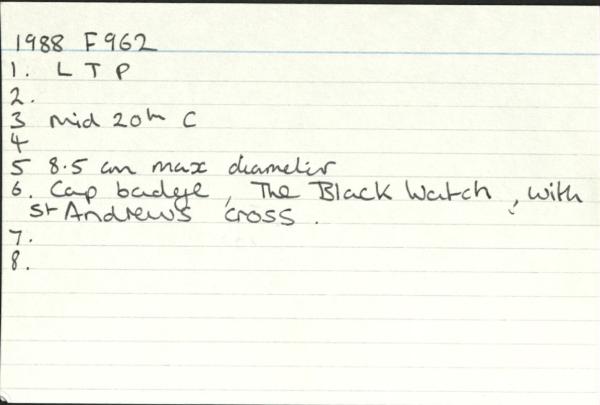 1988 F962
1. L T P
2.
3 mid 20th C
4
5 8.5 cm max diameter
6. Cap badge, The Black Watch, with
St Andrews cross.
7.
8.